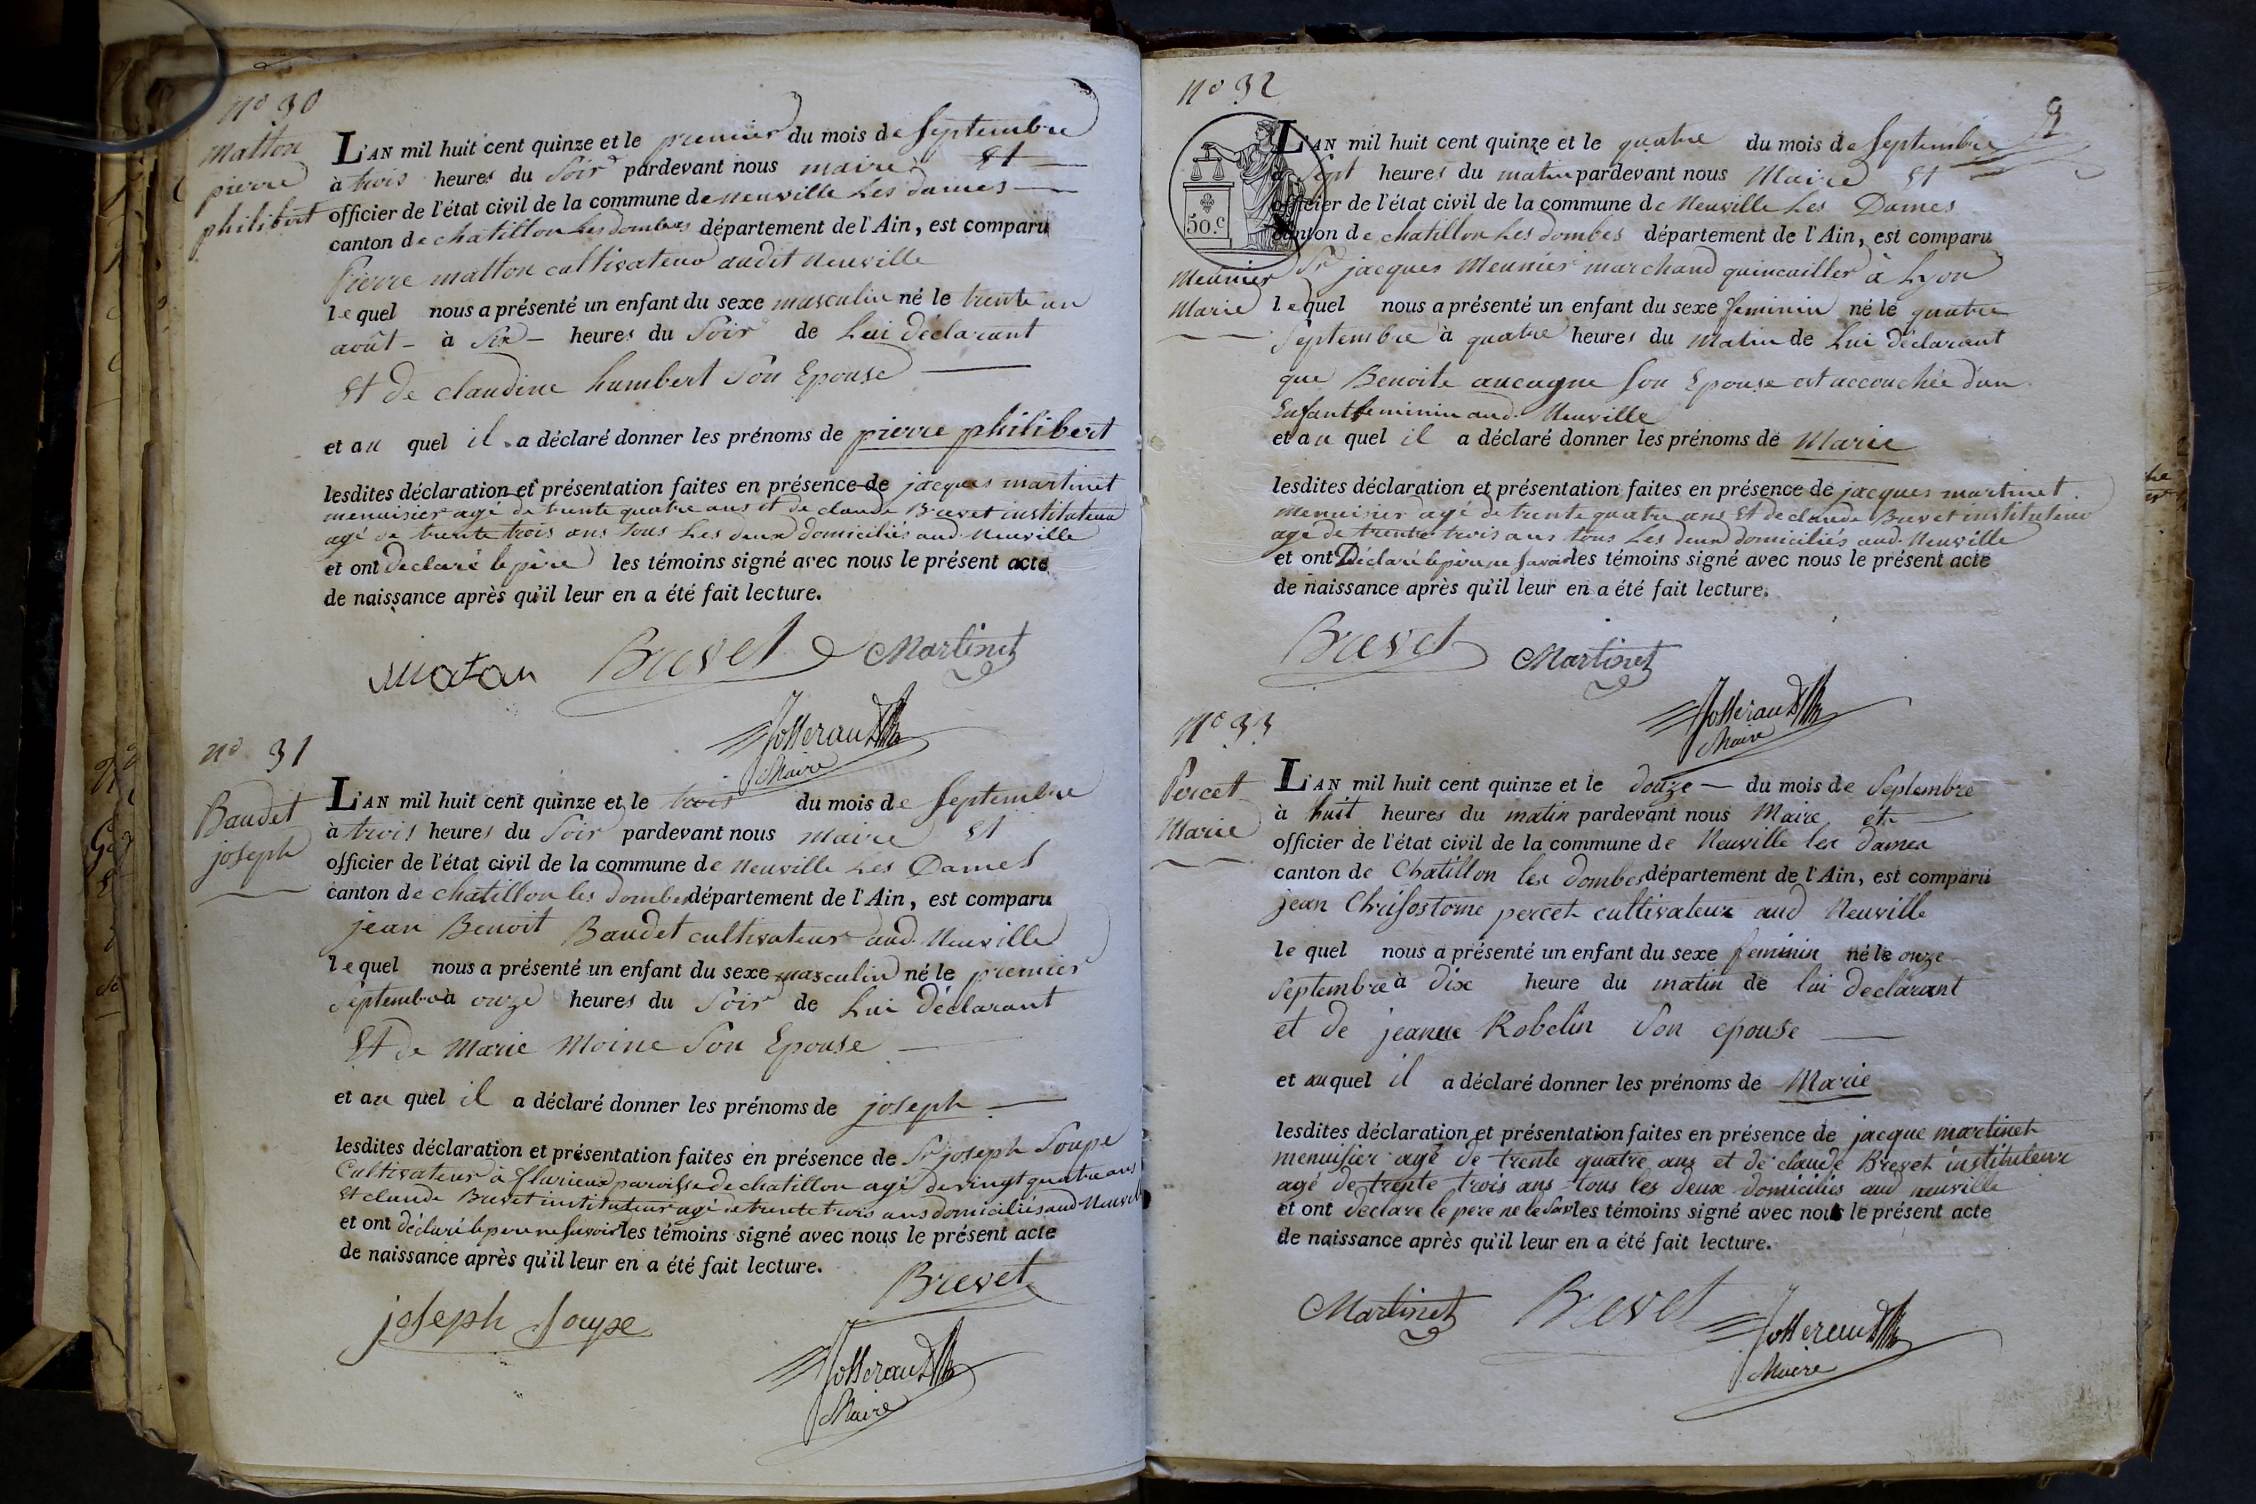 nº 30
matton
pierre
philibert
L'AN mil huit cent quinze et le premier du mois de Septembre
à trois heures du Soir pardevant nous maire Et
officier de l'état civil de la commune de neuville Les dames
canton de chatillon Les dombes département de l'Ain, est comparu
Pierre matton cultivateur audit neuville
lequel nous a présenté un enfant du sexe masculin né le trente un
août à Six heures du Soir de Lui déclarant
Et de claudine humbert Son Epouse
et au quel il a déclaré donner les prénoms de pierre philibert
lesdites déclaration et présentation faites en présence de jacques martinet
menuisier agé de trente quatre ans et de claude Brevet instituteur
agé de trente trois ans tous Les deux domiciliés aud. Neuville
et ont déclaré le père les témoins signé avec nous le présent acte
de naissance après qu'il leur en a été fait lecture.
matan Brevet Martinet
Josserand
Maire
nº 31
Baudet
joseph
L'AN mil huit cent quinze et le trois du mois de Septembre
à trois heures du Soir pardevant nous maire Et
officier de l'état civil de la commune de neuville Les Dames
canton de chatillon les dombes département de l'Ain, est comparu
jean Benoit Baudet cultivateur aud. Neuville
lequel nous a présenté un enfant du sexe masculin né le premier
Septembre à onze heures du Soir de Lui déclarant
Et de Marie Moine Son Epouse
et au quel il a déclaré donner les prénoms de joseph
lesdites déclaration et présentation faites en présence de Sr joseph Soupe
Cultivateur à flurieux paroisse de chatillon agé de vingt quatre ans
Et claude Brevet instituteur agé de trente trois ans domiciliés aud. Neuville
et ont déclaré le père ne savoir les témoins signé avec nous le présent acte
de naissance après qu'il leur en a été fait lecture.
Brevet
joseph Soupe
Josserand
Maire
nº 32
9
50.c
Meunier
Marie
L'AN mil huit cent quinze et le quatre du mois de Septembre
à Sept heures du matin pardevant nous Maire Et
officier de l'état civil de la commune de Neuville Les Dames
canton de chatillon Les dombes département de l'Ain, est comparu
Sr jacques Meunier marchand quincailler à Lyon
lequel nous a présenté un enfant du sexe feminin né le quatre
Septembre à quatre heures du Matin de Lui déclarant
que Benoite aucagne Son Epouse est accouchée d'un
Enfant feminin aud. Neuville
et au quel il a déclaré donner les prénoms de Marie
lesdites déclaration et présentation faites en présence de jacques martinet
menuisier agé de trente quatre ans Et de claude Brevet instituteur
agé de trente trois ans tous Les deux domiciliés aud. Neuville
et ont Déclaré le père ne savoir les témoins signé avec nous le présent acte
de naissance après qu'il leur en a été fait lecture.
Brevet Martinet
Josserand
Maire
Nº 33
Percet
Marie
L'AN mil huit cent quinze et le douze du mois de Septembre
à huit heures du matin pardevant nous Maire et
officier de l'état civil de la commune de Neuville les dames
canton de Chatillon les dombes département de l'Ain, est comparu
jean Chrisostome percet cultivateur aud Neuville
le quel nous a présenté un enfant du sexe feminin né le onze
Septembre à dix heure du matin de lui declarant
et de jeanne Robelin Son epouse
et au quel il a déclaré donner les prénoms de Marie
lesdites déclaration et présentation faites en présence de jacque martinet
menuisier agé de trente quatre ans et de claude Brevet instituteur
agé de trente trois ans tous les deux domiciliés aud neuville
et ont déclaré le père ne le Sav les témoins signé avec nous le présent acte
de naissance après qu'il leur en a été fait lecture.
Martinet Brevet Josserand
Maire